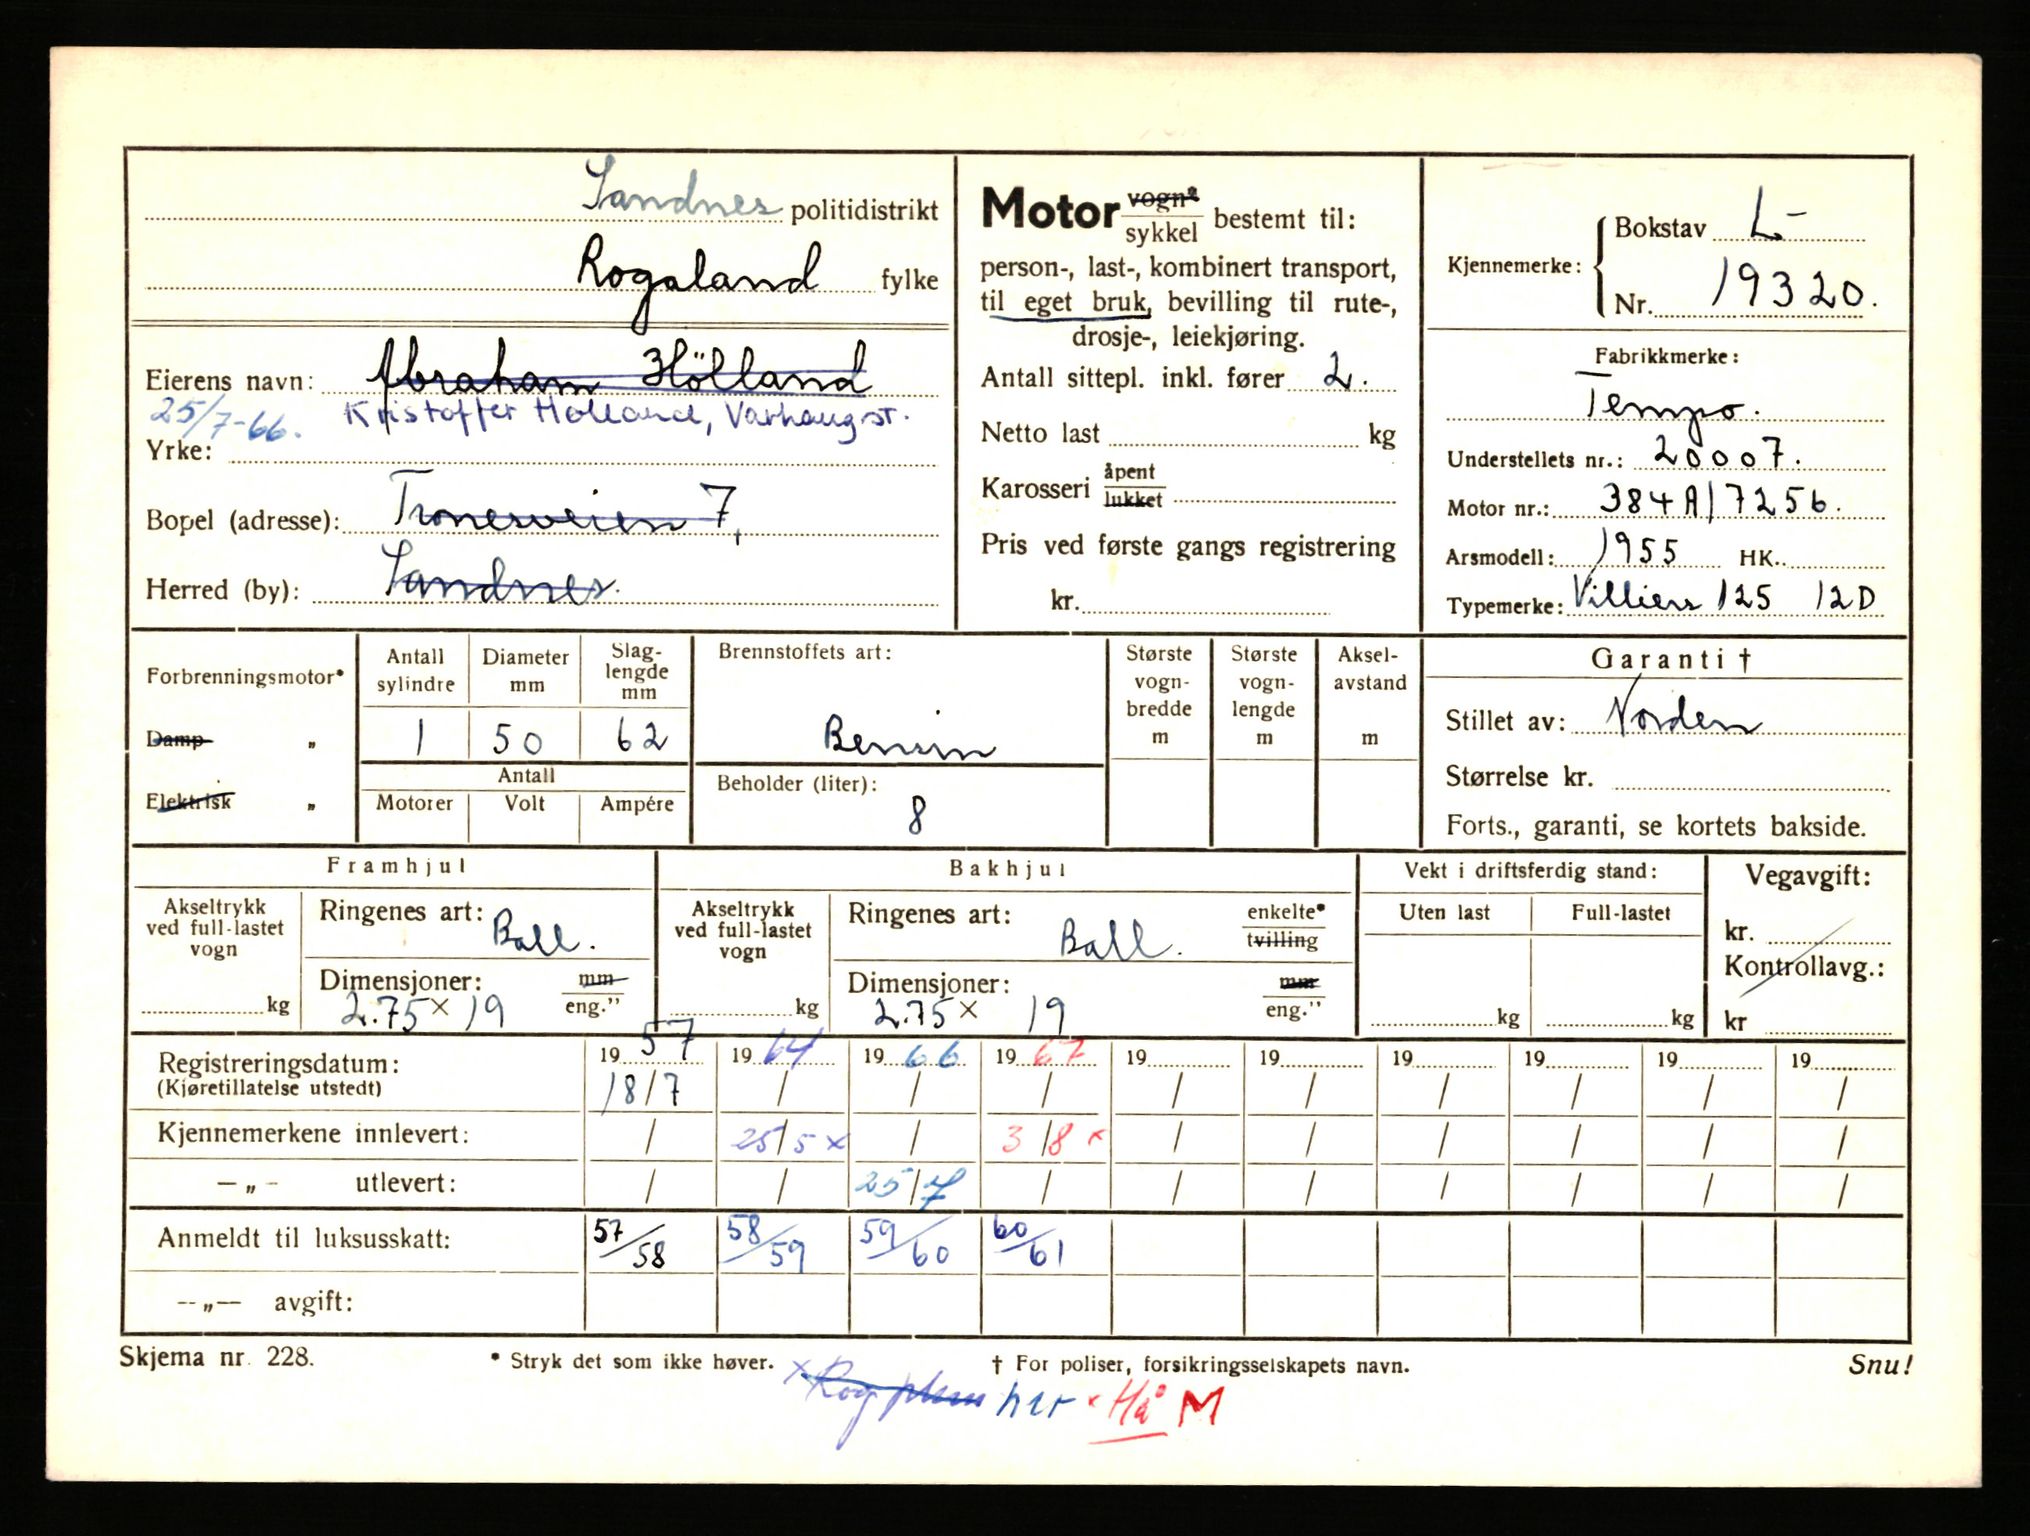 Sandnes politidistrikt
Rogaland fylke
Eierens navn: Abraham Hölland
25/7-66. Kristoffer Holland, Varhaug st.
Yrke:
Bopel (adresse): Tronesveien 7,
Herred (by): Sandnes.
Motor vogn* sykkel bestemt til:
person-, last-, kombinert transport,
til eget bruk, bevilling til rute-,
drosje-, leiekjøring.
Antall sittepl. inkl. fører 2.
Netto last kg
Karosseri åpent lukket
Pris ved første gangs registrering
kr.
Kjennemerke: Bokstav L-
Nr. 19320.
Fabrikkmerke:
Tempo.
Understellets nr.: 20007.
Motor nr.: 384A/7256.
Arsmodell: 1955 HK.
Typemerke: Villiers 125 12D
Forbrenningsmotor*
Damp „
Elektrisk „
Antall sylindre
Diameter mm
Slag-lengde mm
1 50 62
Antall
Motorer Volt Ampére
Brennstoffets art:
Bensin
Beholder (liter):
8
Største vogn-bredde m
Største vogn-lengde m
Aksel-avstand m
Garanti †
Stillet av: Norden
Størrelse kr.
Forts., garanti, se kortets bakside.
Framhjul
Akseltrykk ved full-lastet vogn
kg
Ringenes art: Ball.
Dimensjoner: mm eng."
2.75 × 19
Bakhjul
Akseltrykk ved full-lastet vogn
kg
Ringenes art: Ball. enkelte* tvilling
Dimensjoner: mm eng."
2.75 × 19
Vekt i driftsferdig stand:
Uten last Full-lastet
kg kg
Vegavgift:
kr.
Kontrollavg.:
kr
Registreringsdatum: 19 57 19 64 19 66 19 67 19 19 19 19 19 19
(Kjøretillatelse utstedt) 18/7 / / / / / / / / /
Kjennemerkene innlevert: / 25/5 x / 3/8 x / / / / / /
—„— utlevert: / / 25/7 / / / / / / /
Anmeldt til luksusskatt: 57/58 58/59 59/60 60/61
—„— avgift:
Skjema nr. 228. * Stryk det som ikke høver. † For poliser, forsikringsselskapets navn. Snu!
x Rog her x Hå M